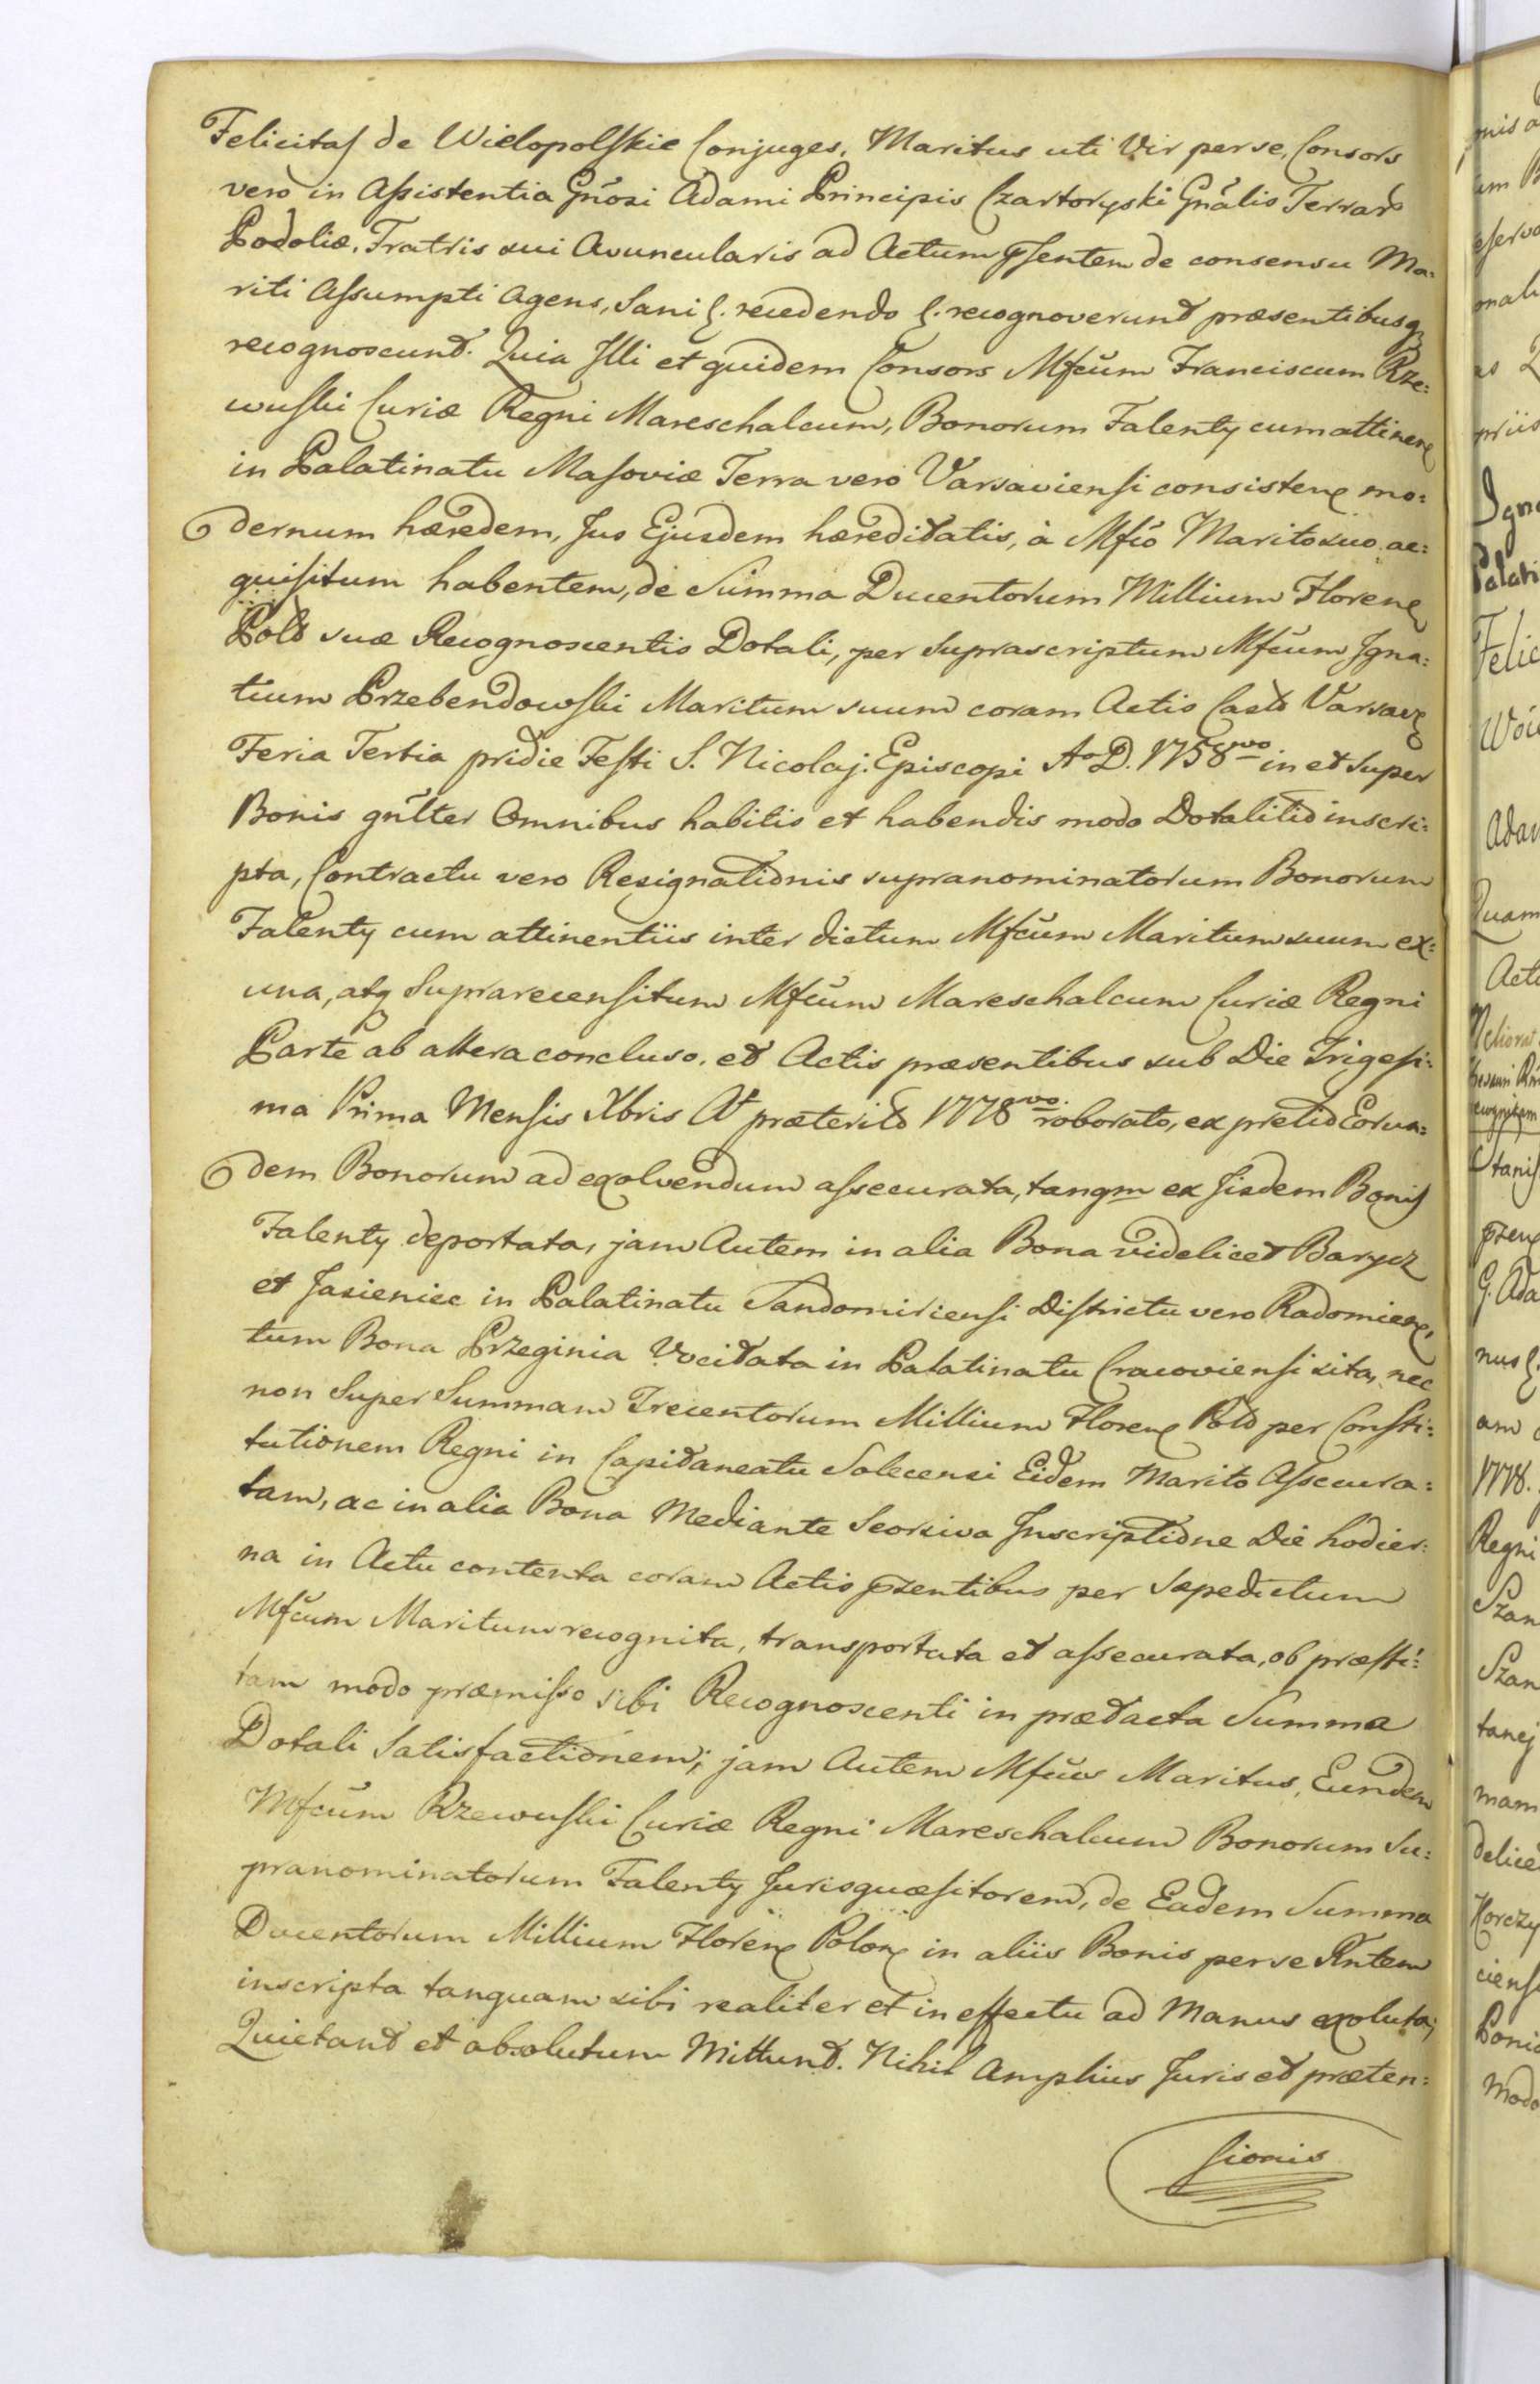 Felicitas de Wielopolskie Conjuges, Maritus uti Vir per se, Consors
vero in Assistentia Gnosi Adami Principis Czartoryski Gnalis Terrar
Podoliæ, Fratris sui Avuncularis ad Actum psentem de consensu Ma:
riti Assumpti Agens, Sani &. recedendo &. recognoverunt præsentibusq
recognoscunt. Quia Illi et quidem Consors Mfcum Franciscum Rze:
wuski Curiæ Regni Mareschalcum, Bonorum Falenty cum attinen
in Palatinatu Masoviæ Terra vero Varsaviensi consisten mo:
dernum hæredem, Jus Ejusdem hæreditatis, à Mfco Marito suo ac:
quisitum habentem, de Summa Ducentorum Millium Floren
Pold suæ Recognoscentis Dotali, per Suprascriptum Mfcum Igna:
tium Przebendowski Maritum suum coram Actis Castr Varsav
Feria Tertia pridie Festi S. Nicolaj. Episcopi Ao D. 1758vo in et super
Bonis gnlter Omnibus habitis et habendis modo Dotalitio inscri:
pta, Contractu vero Resignationis supranominatorum Bonorum
Falenty cum attinentiis inter dictum Mfcum Maritum suum ex:
una, atq Suprarecensitum Mfcum Mareschalcum Curiæ Regni
Parte ab altera concluso, et Actis præsentibus sub Die Trigesi:
ma Prima Mensis Xbris A præterito 1778vo. roborato, ex pretio Eorun:
dem Bonorum ad exolvendum assecurata, tanqm ex Iisdem Bonis
Falenty deportata, jam Autem in alia Bona videlicet Barycz
et Jasieniec in Palatinatu Sandomiriensi Districtu vero Radomien,
tum Bona Przeginia Vocitata in Palatinatu Cracoviensi sita, nec
non Super Summam Trecentorum Millium Floren Pold per Consti:
tutionem Regni in Capitaneatu Solecensi Eidem Marito Assecura:
tam, ac in alia Bona Mediante Seorsiva Inscriptione Die hodier:
na in Actu contenta coram Actis pzentibus per Sæpedictum
Mfcum Maritum recognita, transportata et assecurata, ob præsti:
tam modo præmisso sibi Recognoscenti in prætacta Summa
Dotali Satisfactionem; jam Autem Mfcus Maritus, Eundem
Mfcum Rzewuski Curiæ Regni Mareschalcum Bonorum Su:
pranominatorum Falenty Jurisquæsitorem, de Eadem Summa
Ducentorum Millium Floren Polon in aliis Bonis per se Rntem
inscripta tanquam sibi realiter et in effectu ad Manus exoluta,
Quietant et absolutum Mittunt. Nihil Amplius Juris et præten:
sionis